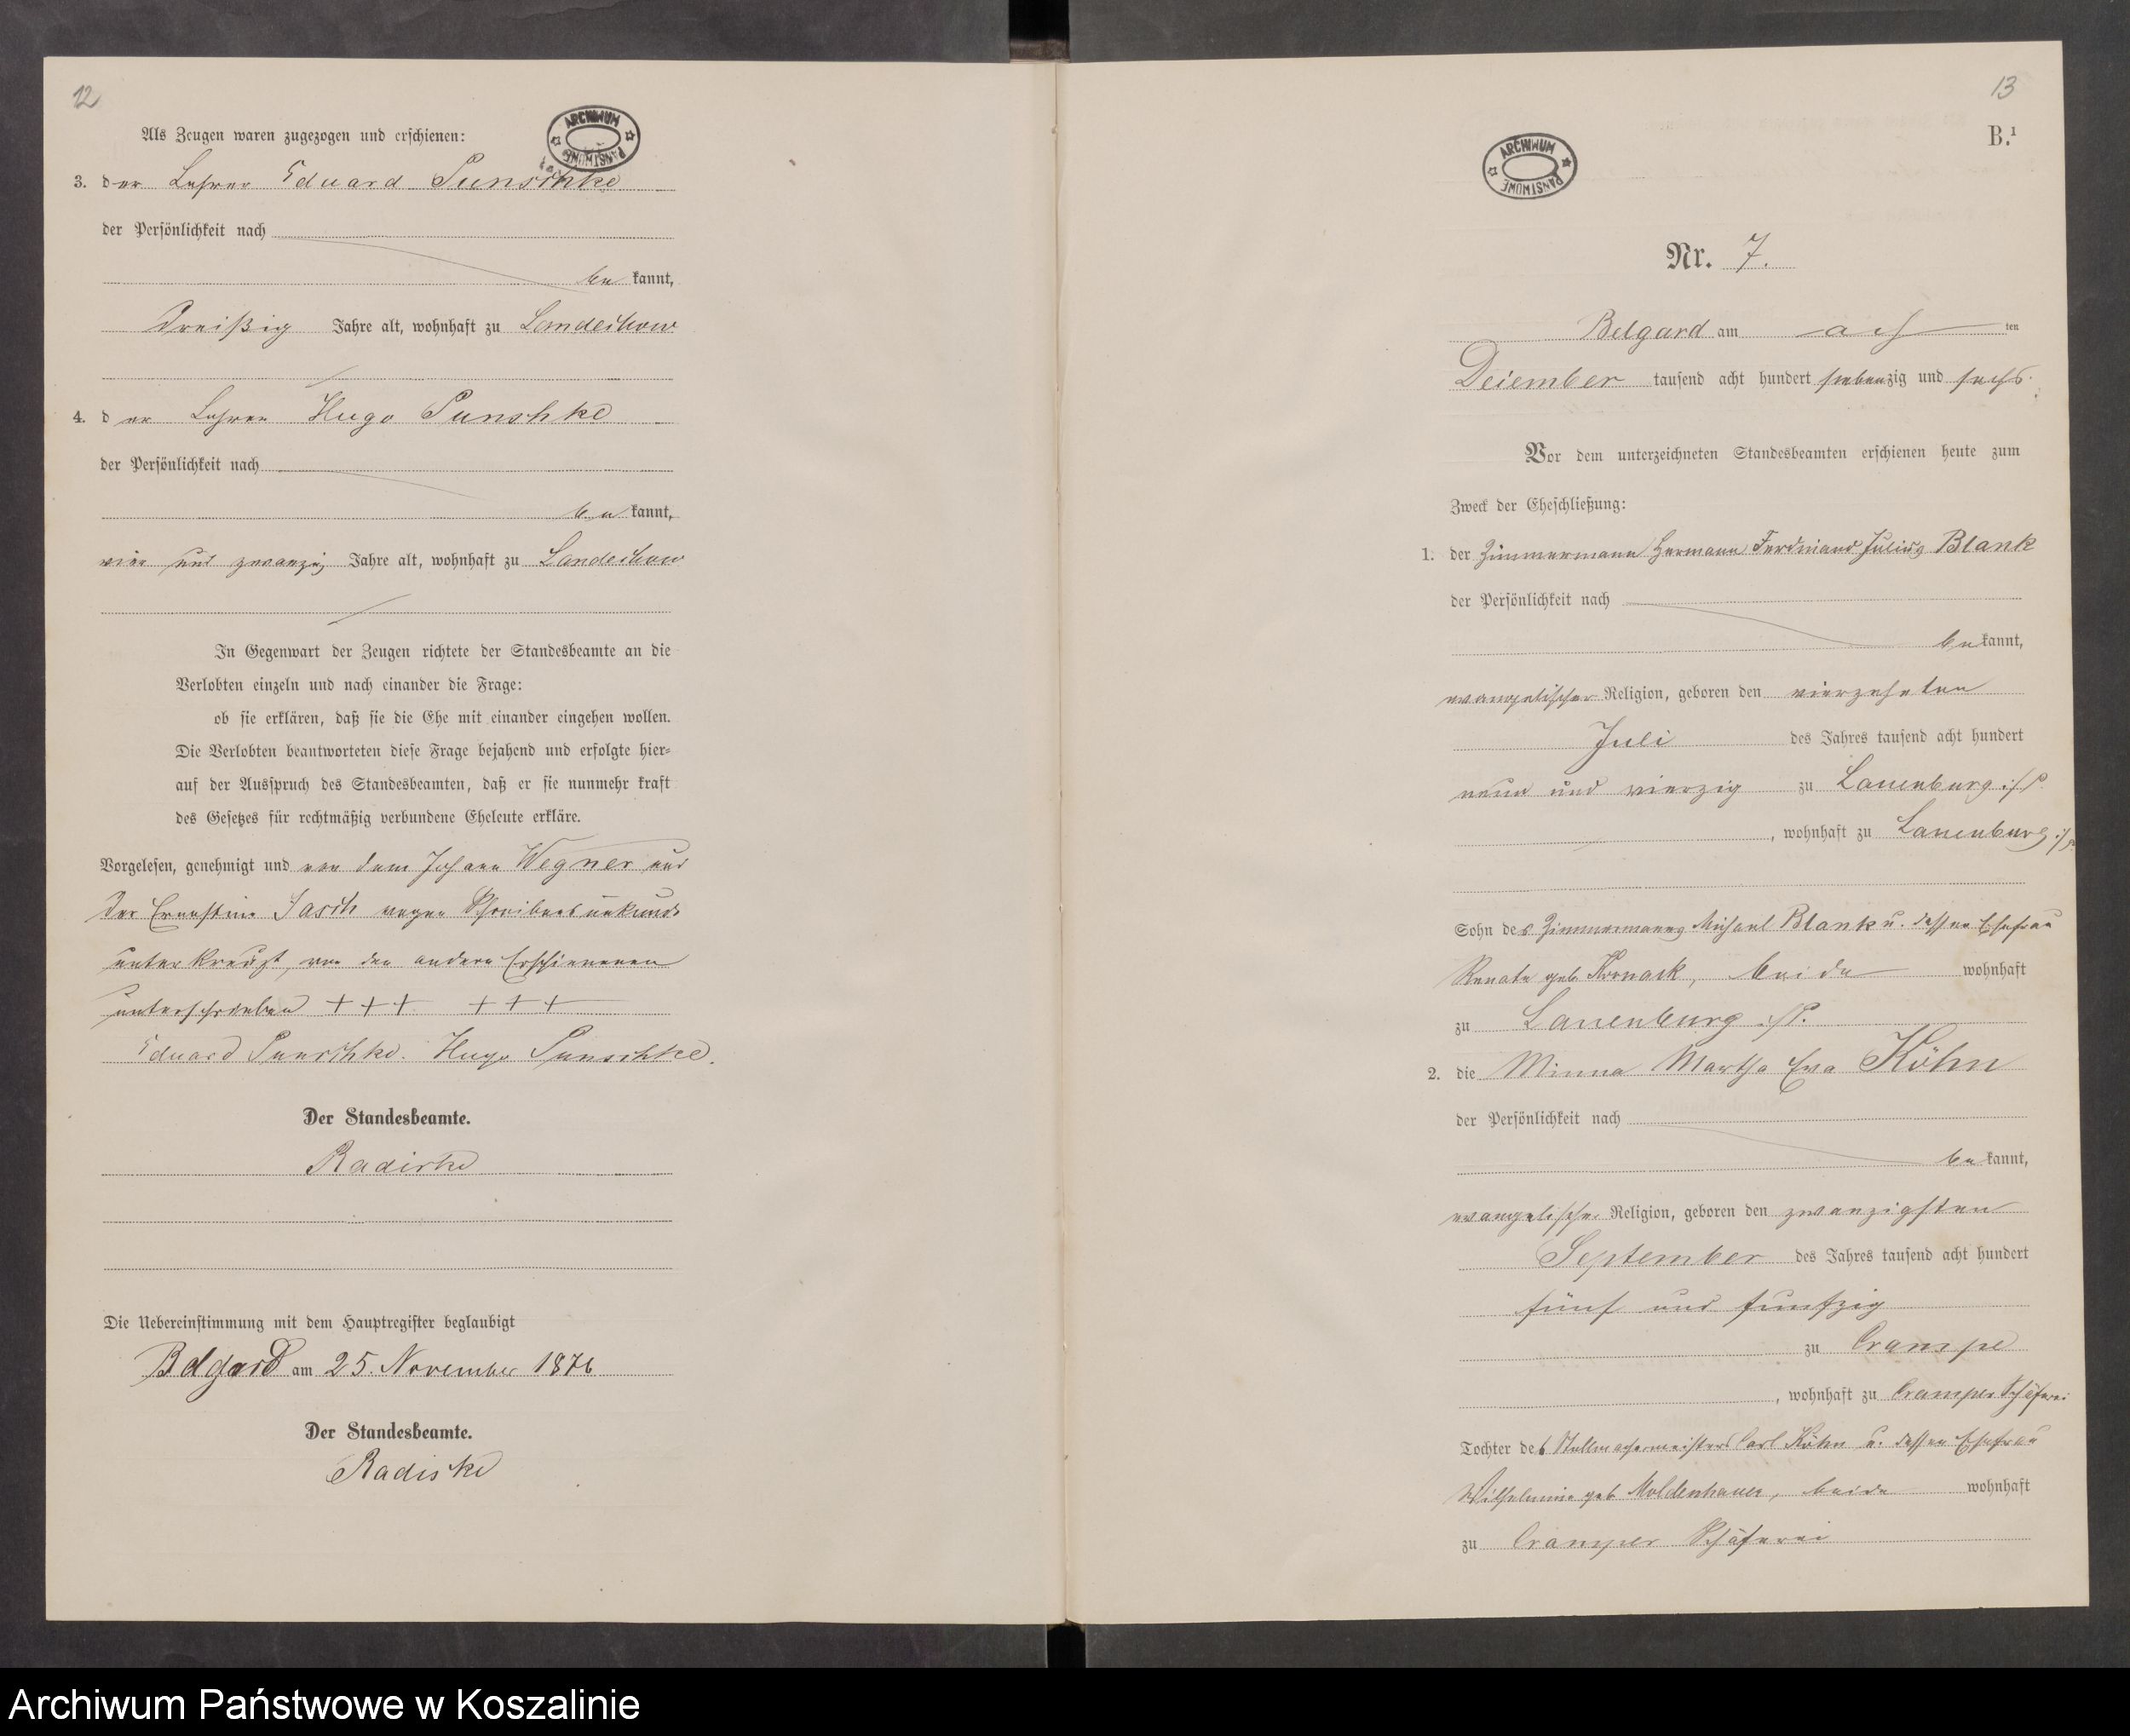 12
ARCHIWUM PAŃSTWOWE
Als Zeugen waren zugezogen und erschienen:
3. der Lehrer Eduard Punschke
der Persönlichkeit nach
be kannt,
dreißig Jahre alt, wohnhaft zu Landechow
4. der Lehrer Hugo Punschke
der Persönlichkeit nach
be kannt,
vier und zwanzig Jahre alt, wohnhaft zu Landechow
In Gegenwart der Zeugen richtete der Standesbeamte an die
Verlobten einzeln und nach einander die Frage:
ob sie erklären, daß sie die Ehe mit einander eingehen wollen.
Die Verlobten beantworteten diese Frage bejahend und erfolgte hier-
auf der Ausspruch des Standesbeamten, daß er sie nunmehr kraft
des Gesetzes für rechtmäßig verbundene Eheleute erkläre.
Vorgelesen, genehmigt und von dem Johann Wegner und
der Ernestine Jasch wegen Schreibensunkunde
unterkreuzt, von den andern Erschienenen
unterschrieben +++ +++
Eduard Punschke. Hugo Punschke.
Der Standesbeamte.
Radiske
Die Uebereinstimmung mit dem Hauptregister beglaubigt
Belgard am 25. November 1876
Der Standesbeamte.
Radiske
13
B.1
ARCHIWUM PAŃSTWOWE
Nr. 7.
Belgard am ach ten
December tausend acht hundert siebenzig und sechs.
Vor dem unterzeichneten Standesbeamten erschienen heute zum
Zweck der Eheschließung:
1. der Zimmermann Hermann Ferdinand Julius Blank
der Persönlichkeit nach
be kannt,
evangelischer Religion, geboren den vierzehnten
Juli des Jahres tausend acht hundert
neun und vierzig zu Lauenburg i/P.
, wohnhaft zu Lauenburg i/P.
Sohn des Zimmermanns Michael Blank u. dessen Ehefrau
Renate geb. Kornack, beide wohnhaft
zu Lauenburg i/P.
2. die Minna Martha Eva Köhn
der Persönlichkeit nach
be kannt,
evangelischer Religion, geboren den zwanzigsten
September des Jahres tausend acht hundert
fünf und funfzig
zu Crampe
, wohnhaft zu Cramper Schäferei
Tochter des Stellmachermeisters Carl Köhn u. dessen Ehefrau
Wilhelmine geb. Moldenhauer, beide wohnhaft
zu Cramper Schäferei
Archiwum Państwowe w Koszalinie